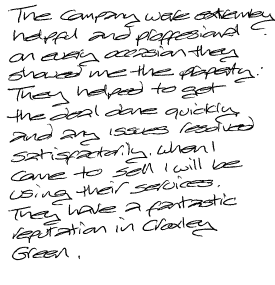 The company were extremely
helpful and proffesional
on every occasion they
showed me the property.
They helped to get
the deal done quickly
and any issues resolved
satisfactorily. When I
came to sell I will be
using their services.
They have a fantastic
reputation in Croxley
Green.